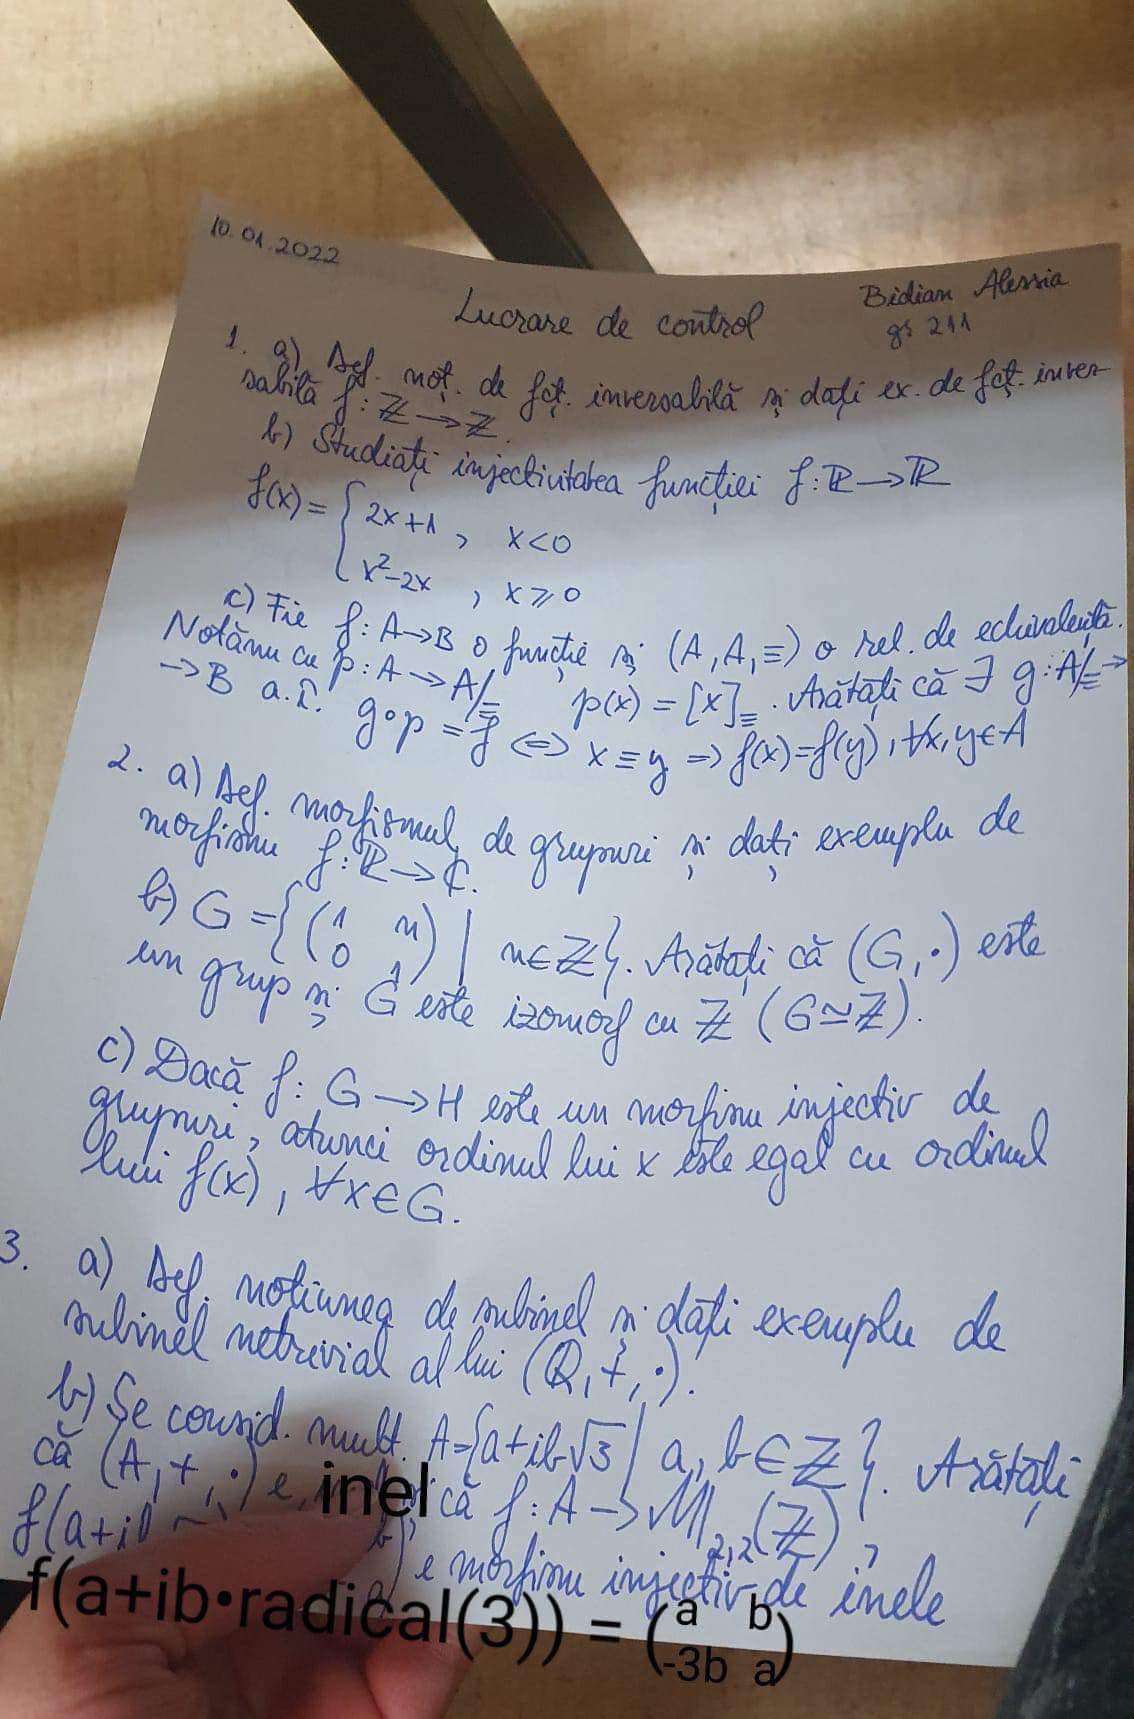 10.01.2022
Bidian Alessia
gr 211
Lucrare de control
1. a) Def. noț. de fcț. inversabilă și dați ex. de fcț. inver-
sabilă f: ℤ → ℤ.
b) Studiați injectivitatea funcției f: ℝ → ℝ
f(x) = { 2x+1 , x<0
x²-2x , x ⩾ 0
c) Fie f: A→B o funcție și (A, A, ≡) o rel. de echivalență.
Notăm cu p: A → A/≡ p(x) = [x]≡. Arătați că ∃ g: A/≡ →
→B a.î. g∘p = f ⇔ x ≡ y ⇒ f(x)=f(y), ∀x, y ∈ A
2. a) Def. morfismul de grupuri și dați exemplu de
morfism f: ℝ → ℂ.
b) G = { (1 n
0 1) | n∈ℤ}. Arătați că (G, ·) este
un grup și G este izomorf cu ℤ (G≃ℤ).
c) Dacă f: G → H este un morfism injectiv de
grupuri, atunci ordinul lui x este egal cu ordinul
lui f(x), ∀x∈G.
3. a) Def. noțiunea de subinel și dați exemplu de
subinel netrivial al lui (ℚ, +, ·).
b) Se consid. mult. A={a+ib√3 | a, b ∈ ℤ}. Arătați
că (A, +, ·) e inel că f: A → M₂,₂(ℤ),
f(a+ib b) e morfism injectiv de inele
f(a+ib•radical(3)) = (a b
-3b a)